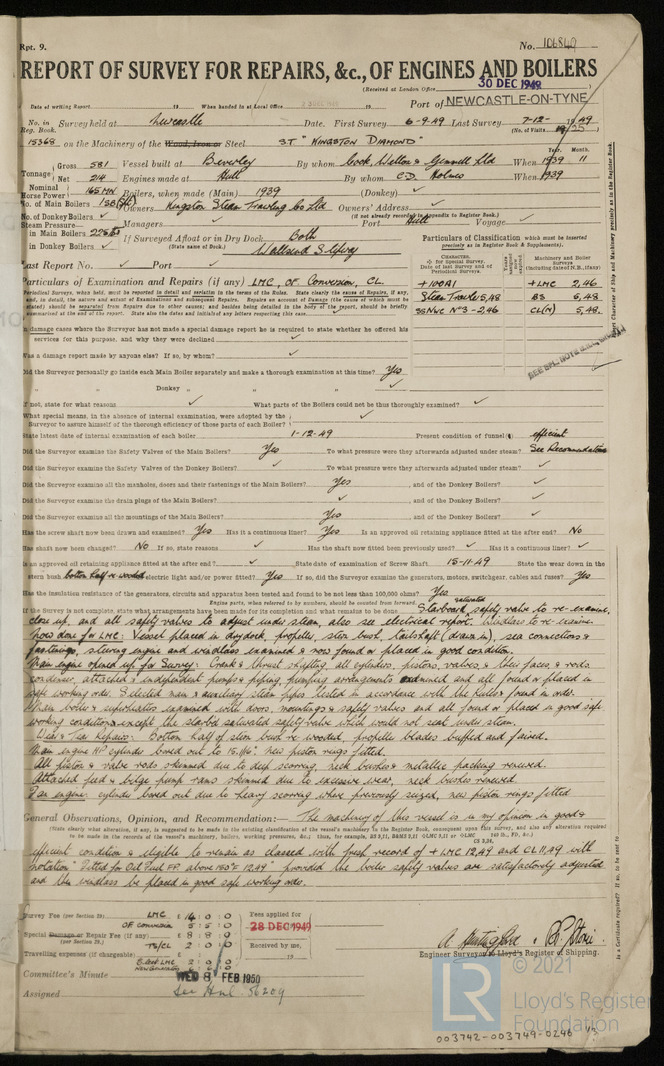 Rpt. 9.
No. 106840
REPORT OF SURVEY FOR REPAIRS, &c., OF ENGINES AND BOILERS
30 DEC 1949
(Received at London Office
Date of writing Report 19 When handed in at Local Office 19 Port of NEWCASTLE-ON-TYNE
No. in Reg. Book. Survey held at Newcastle Date. First Survey 6-9-49 Last Survey 7-12- 1949
(No. of Visits 25)
15368 on the Machinery of the Wood, Iron or Steel S.T "KINGSTON DIAMOND"
Tonnage Gross 581 Vessel built at Beverley By whom Cook, Welton & Gemmell Ltd When 1939 11
Year. Month.
Net 214 Engines made at Hull By whom C.D. Holmes When 1939
Nominal Horse Power 145 MN Boilers, when made (Main) 1939 (Donkey)
No. of Main Boilers Owners Kingston Steam Trawling Co Ltd Owners' Address
(if not already recorded in Appendix to Register Book.)
No. of Donkey Boilers Managers Port Hull Voyage
Steam Pressure in Main Boilers 225 If Surveyed Afloat or in Dry Dock Both
in Donkey Boilers (State name of Dock.) Wallsend Slipway
Particulars of Classification which must be inserted precisely as in Register Book & Supplements).
Last Report No. Port
Particulars of Examination and Repairs (if any) LMC, OF Conversion, CL.
+100A1 +LMC 2,46
Steam Trawler 5,48 BS 5,48
SSNWC No 3 - 2,46 CL(N) 5,48
In damage cases where the Surveyor has not made a special damage report he is required to state whether he offered his
services for this purpose, and why they were declined
Was a damage report made by anyone else? If so, by whom?
Did the Surveyor personally go inside each Main Boiler separately and make a thorough examination at this time? Yes
" " Donkey " " "
If not, state for what reasons What parts of the Boilers could not be thus thoroughly examined?
What special means, in the absence of internal examination, were adopted by the
Surveyor to assure himself of the thorough efficiency of those parts of each Boiler?
State latest date of internal examination of each boiler 1-12-49 Present condition of funnel(s) efficient
Did the Surveyor examine the Safety Valves of the Main Boilers? Yes To what pressure were they afterwards adjusted under steam? See Recommendation
Did the Surveyor examine the Safety Valves of the Donkey Boilers? To what pressure were they afterwards adjusted under steam?
Did the Surveyor examine all the manholes, doors and their fastenings of the Main Boilers? Yes, and of the Donkey Boilers?
Did the Surveyor examine the drain plugs of the Main Boilers? , and of the Donkey Boilers?
Did the Surveyor examine all the mountings of the Main Boilers? Yes, and of the Donkey Boilers?
Has the screw shaft now been drawn and examined? Yes Has it a continuous liner? Yes Is an approved oil retaining appliance fitted at the after end? No
Has shaft now been changed? No If so, state reasons Has the shaft now fitted been previously used? Has it a continuous liner?
Is an approved oil retaining appliance fitted at the after end? State date of examination of Screw Shaft 15-11-49 State the wear down in the
stern bush bottom half re-wooded electric light and/or power fitted? Yes If so, did the Surveyor examine the generators, motors, switchgear, cables and fuses? Yes
Has the insulation resistance of the generators, circuits and apparatus been tested and found to be not less than 100,000 ohms? Yes
Engine parts, when referred to by numbers, should be counted from forward.
If the Survey is not complete, state what arrangements have been made for its completion and what remains to be done Starboard saturated safety valve to re-examine,
close up, and all safety valves to adjust under steam, also see electrical report. Windlass to re-examine.
Now done for LMC: Vessel placed in drydock, propeller, stern bush, tailshaft (drawn in), sea connections &
fastenings, steering engine and windlass examined & now found or placed in good condition.
Main engine opened up for Survey: Crank & thrust shafting, all cylinders, pistons, valves, & their faces & rods
condenser, attached & independent pumps & piping, pumping arrangements examined and all found or placed in
safe working order. Selected main & auxiliary steam pipes tested in accordance with the Rules & found in order.
Main boiler & superheater examined with doors, mountings & safety valves and all found or placed in good safe
working condition except the starbd saturated safety valve which would not seat under steam.
Wear & Tear Repairs: Bottom half of stern bush re-wooded, propeller blades buffed and faired.
Main engine HP cylinder bored out to 15.1/16" new piston rings fitted.
All piston & valve rods skimmed due to deep scoring, neck bushes & metallic packing renewed.
Attached feed & bilge pump rams skimmed due to excessive wear, neck bushes renewed
Fan engine: cylinder bored out due to heavy scoring where previously seized, new piston rings fitted
General Observations, Opinion, and Recommendation:— The machinery of this vessel is in my opinion in good &
efficient condition & eligible to remain as classed with fresh record of + LMC 12,49 and CL 11,49 with
notation "Fitted for Oil Fuel FP above 150°F 12,49" provided the boiler safety valves are satisfactorily adjusted
and the windlass be placed in good safe working order.
Survey Fee (per Section 29). LMC £ 14 : 0 : 0 Fees applied for
OF conversion 5 : 0 : 0 28 DEC 1949
Special Damage or Repair Fee (if any) £ 8 : 8 : 0
(per Section 29.) TS/CL 2 : 0 : 0 Received by me,
Travelling expenses (if chargeable)
Committee's Minute WED 8 FEB 1950
Engineer Surveyor to Lloyd's Register of Shipping.
Assigned See Hul. 56209
© 2021
Lloyd's Register
Foundation
LR
003742-003749-0246